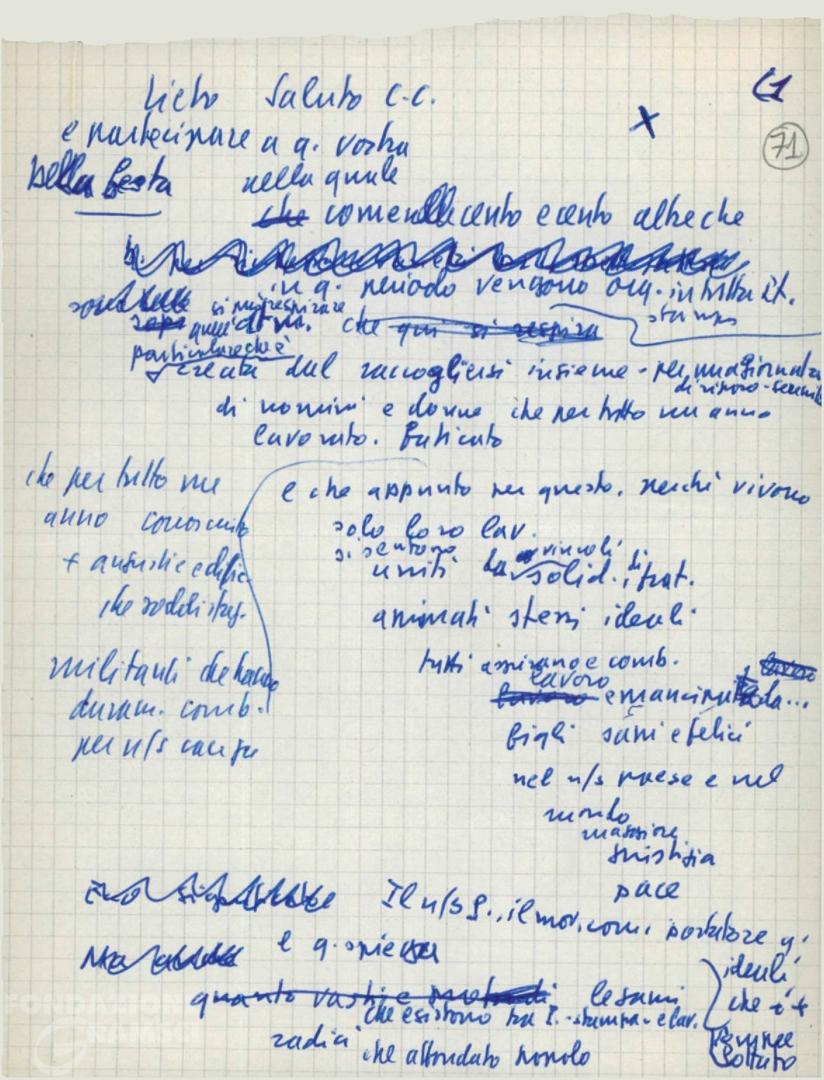 Lieto Saluto C.C.
C1
X
71
e partecipare a q. vostra
Bella festa nella quale
che come nelle cento e cento altre che
in q. periodo vengono org. in tutta it.
si può respirare
quell'atm. che qui si respira
stampa
particolare che è
creata dal raccogliersi insieme - per una giornata
di riposo - serenità
di uomini e donne che per tutto un anno
lavorato. faticato
che per tutto un
anno conosciuto
+ angustie e diffic.
che soddisfaz.
militanti che hanno
duram. comb.
per n/s causa
e che appunto per questo. perché vivono
solo loro lav.
si sentono
uniti da vincoli di
solid. frat.
animati stessi ideali
tutti aspirano e comb.
lavoro
lavoro emancipato da...
figli sani e felici
nel n/s paese e nel
mondo
maggiore
giustizia
pace
Il n/s P., il mov. com. portatore q.
ideali
che è +
e q. spiega
quanto vasti e profondi legami
che esistono tra P. - stampa - e lav.
radici che affondato popolo